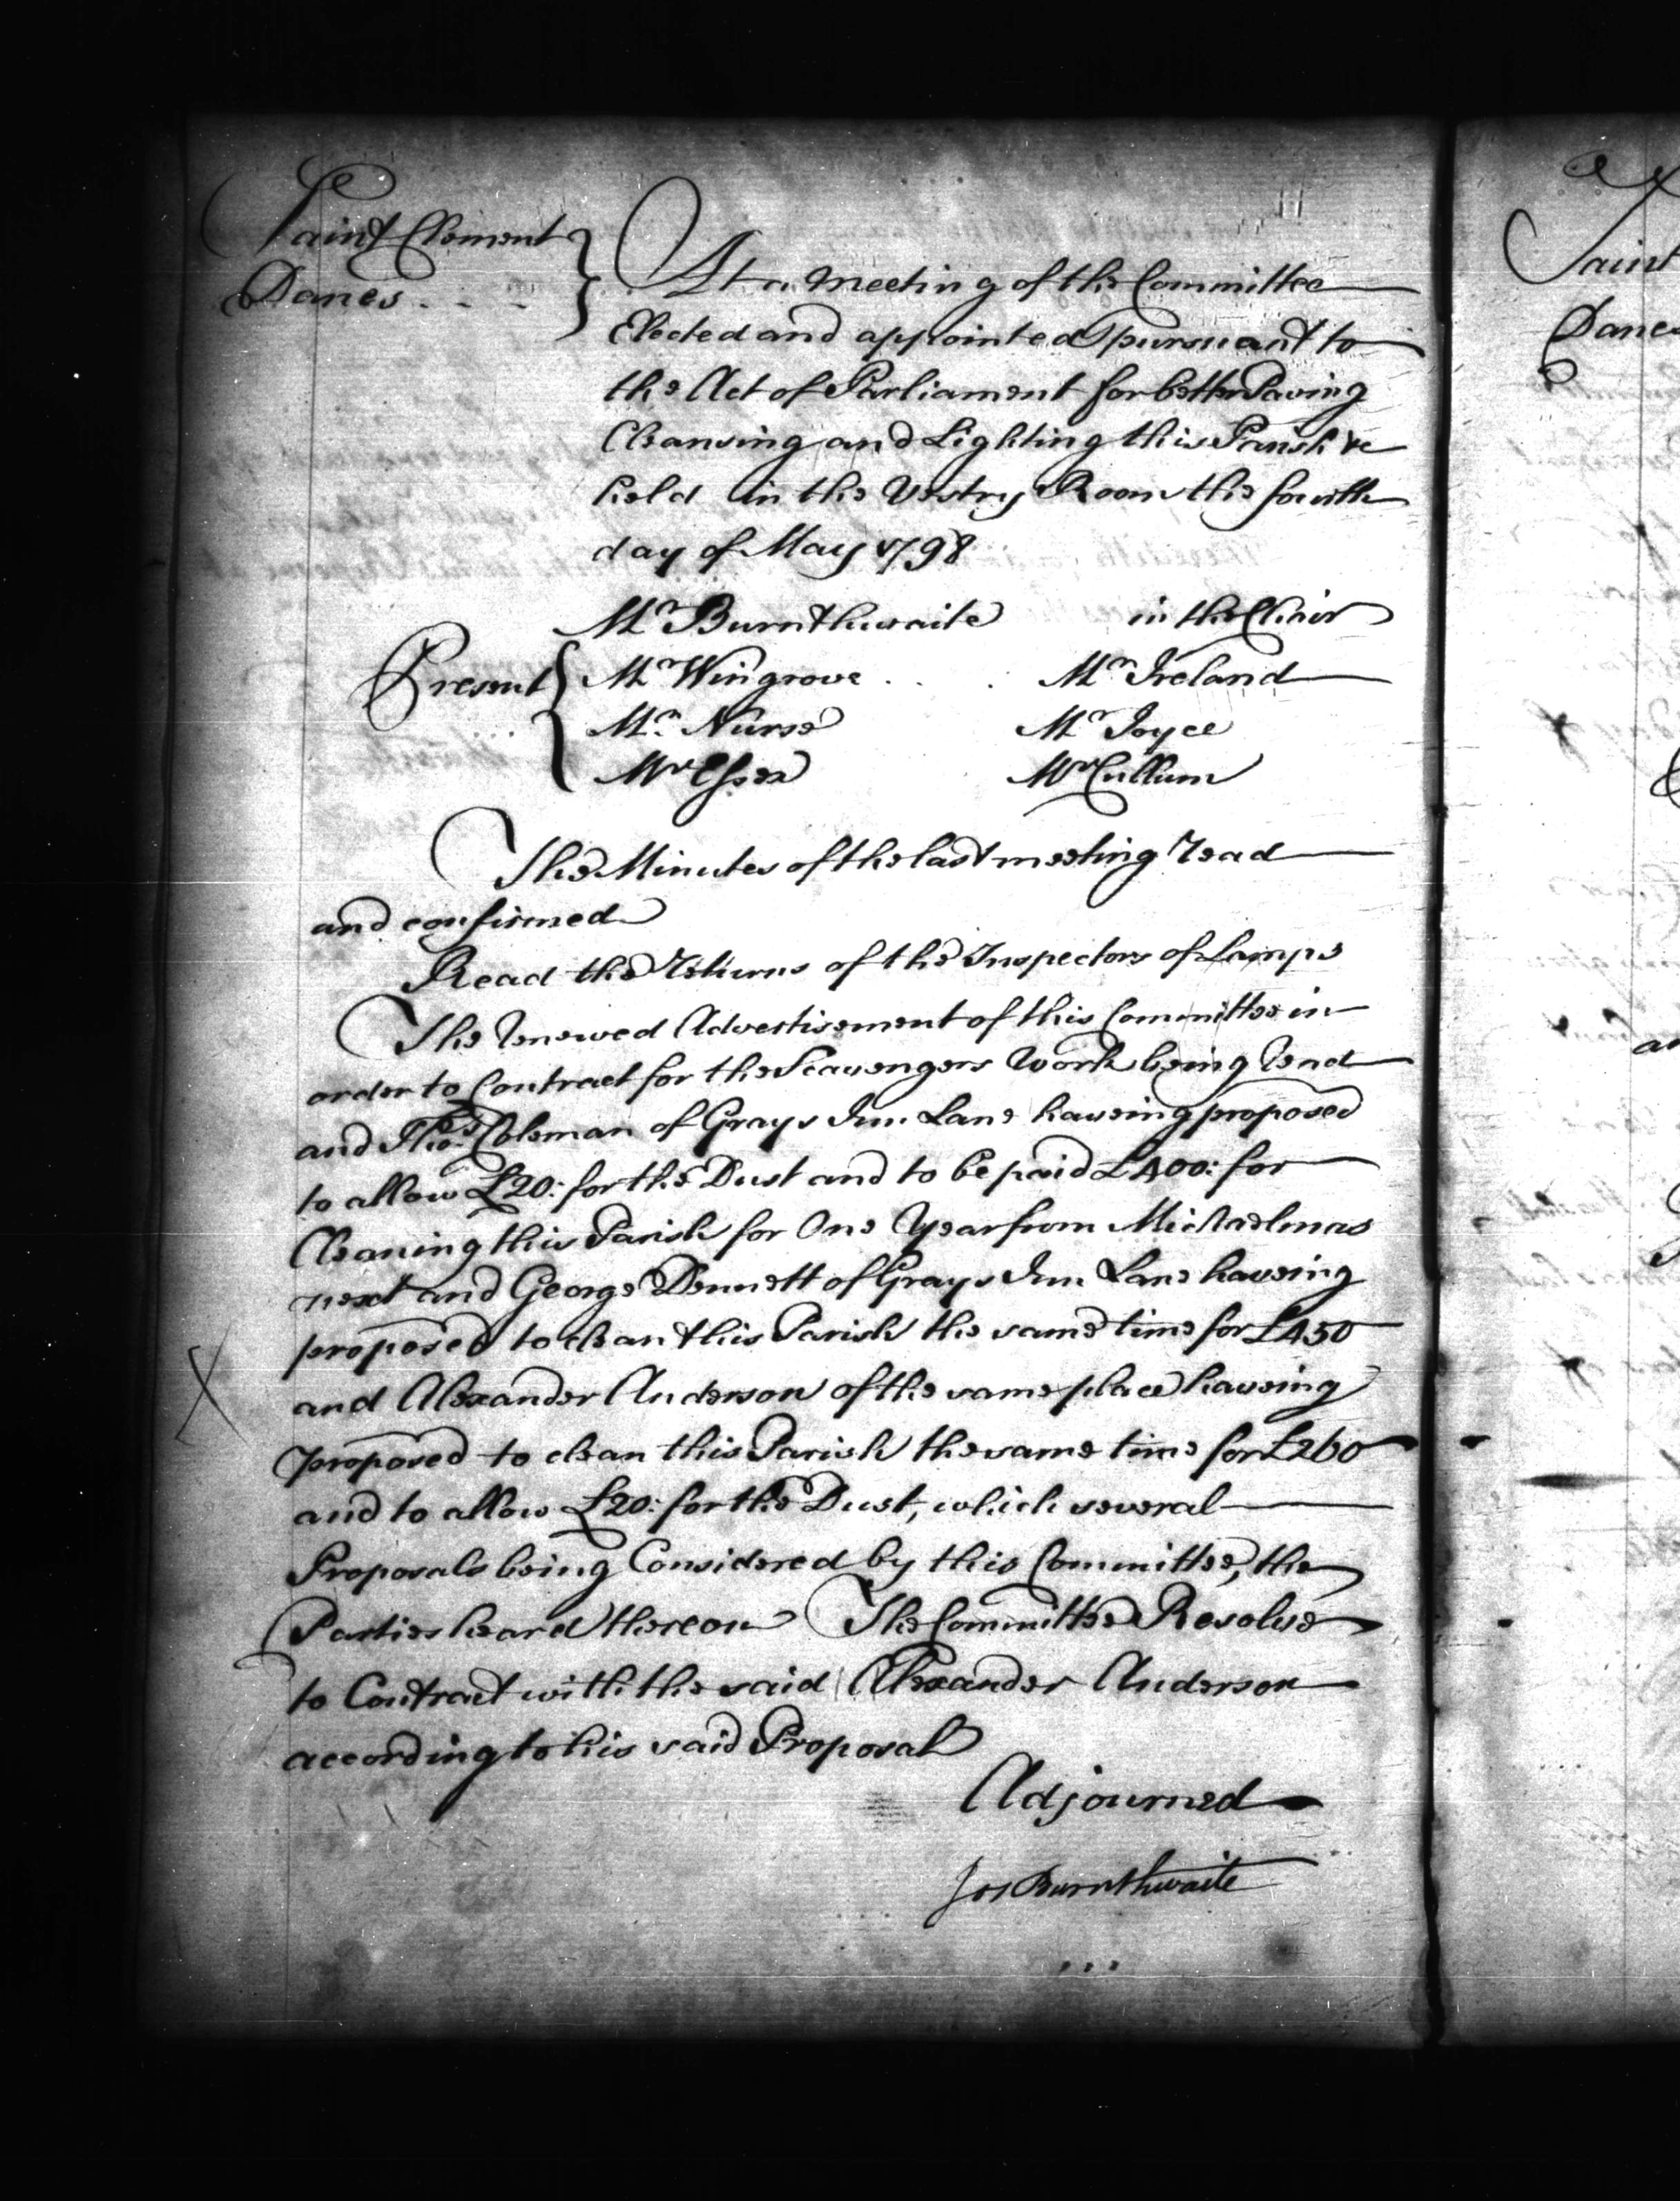 Saint Clement
Danes
At a Meeting of the Committee
Elected and appointed pursuant to
the Act of Parliament for better Paving
Cleansing and Lighting this Parish &c
held in the Vestry Room the fourth
day of May 1798
Mr Burnthwaite in the Chair
Present
Mr Wingrove Mr Ireland
Mr Nurse Mr Joyce
Mr Essex Mr Cullum
The Minutes of the last meeting read
and confirmed
Read the returns of the Inspectors of Lamps
The renewed Advertisement of this Committee in
order to Contract for the Scavengers Work being read
and Thos Coleman of Grays Inn Lane haveing proposed
to allow £20: for the Dust and to be paid £400: for
Cleaning this Parish for One Year from Michaelmas
next and George Dennett of Grays Inn Lane haveing
proposed to clean this Parish the same time for £450
and Alexander Anderson of the same place haveing
proposed to clean this Parish the same time for £260
and to allow £20: for the Dust, which several
Proposals being Considered by this Committee, the
Parties heard thereon The Committee Resolve
to Contract with the said Alexander Anderson
according to his said Proposal
Adjourned
Jos Burnthwaite
Saint
Danes